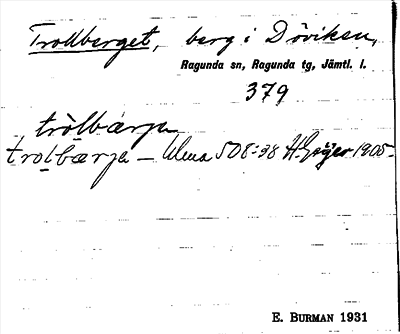 Trollberget, berg i Döviken,
Ragunda sn, Ragunda tg, Jämtl. l.
379
tròlbærje
trolbærje – Ulma 508:38 H Geijer 1905.
E. BURMAN 1931